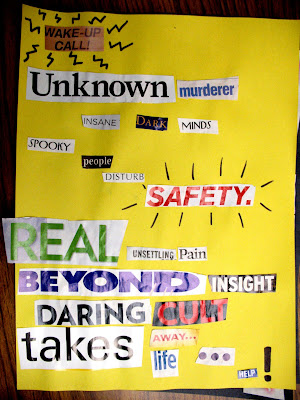 WAKE-UP
CALL!
Unknown murderer
INSANE DARK MINDS
SPOOKY
people
DISTURB
SAFETY.
REAL UNSETTLING Pain
BEYOND INSIGHT
DARING CULT
takes AWAY...
life ...
HELP !